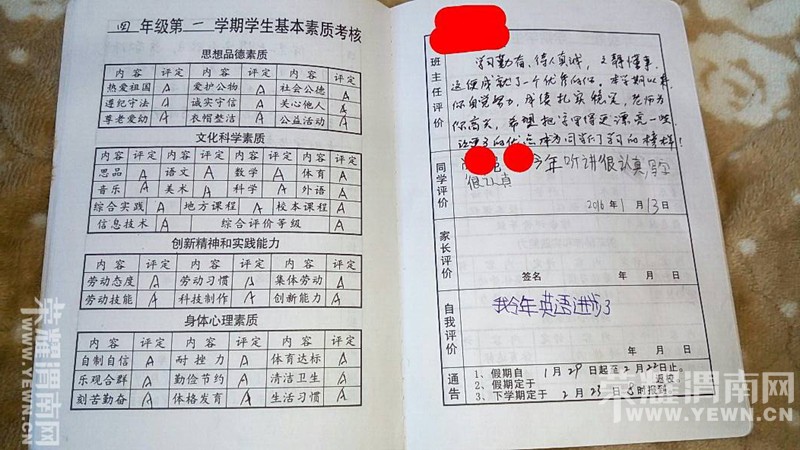 四年级第一学期学生基本素质考核
思想品德素质
内容 评定 内容 评定 内容 评定
热爱祖国 A 爱护公物 A 社会公德 A
遵纪守法 A 诚实守信 A 关心他人 A
尊老爱幼 A 衣帽整洁 A 公益活动 A
文化科学素质
内容 评定 内容 评定 内容 评定 内容 评定
思品 A 语文 A 数学 A 体育 A
音乐 A 美术 A 科学 A 外语 A
综合实践 A 地方课程 A 校本课程 A
信息技术 A 综合评价等级 A
创新精神和实践能力
内容 评定 内容 评定 内容 评定
劳动态度 A 劳动习惯 A 集体劳动 A
劳动技能 A 科技制作 A 创新能力 A
身体心理素质
内容 评定 内容 评定 内容 评定
自制自信 A 耐挫力 A 体育达标 A
乐观合群 A 勤俭节约 A 清洁卫生 A
刻苦勤奋 A 体格发育 A 生活习惯 A
班主任评价
学习勤奋、待人真诚,文静懂事,
这便成就了一个优秀的你,本学期以来
你自觉努力,成绩扎实稳定,老师为
你高兴,希望把字写得更漂亮一些
同学们学习的榜样!
同学评价
今年听讲很认真,写字
很认真
2016年1月13日
家长评价
签名 年 月 日
自我评价
我今年英语进步了
年 月 日
通告
1、假期自 1月29日起至2月22日止。
2、假期定于 返校
3、下学期定于 2月23日8时报到
荣耀渭南网
WWW.YEWN.CN
荣耀渭南网
WWW.YEWN.CN